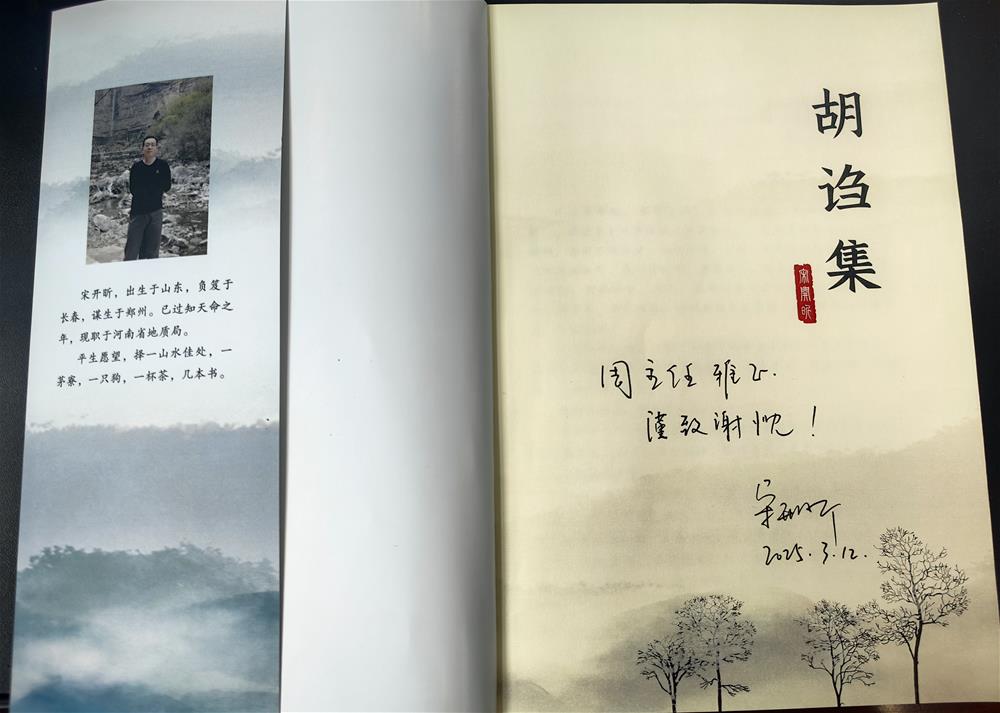 宋开昕，出生于山东，负笈于
长春，谋生于郑州。已过知天命之
年，现职于河南省地质局。
平生愿望，择一山水佳处，一
茅寮，一只狗，一杯茶，几本书。
胡诌集
宋开昕
周主任雅正.
谨致谢忱！
宋开昕
2025.3.12.